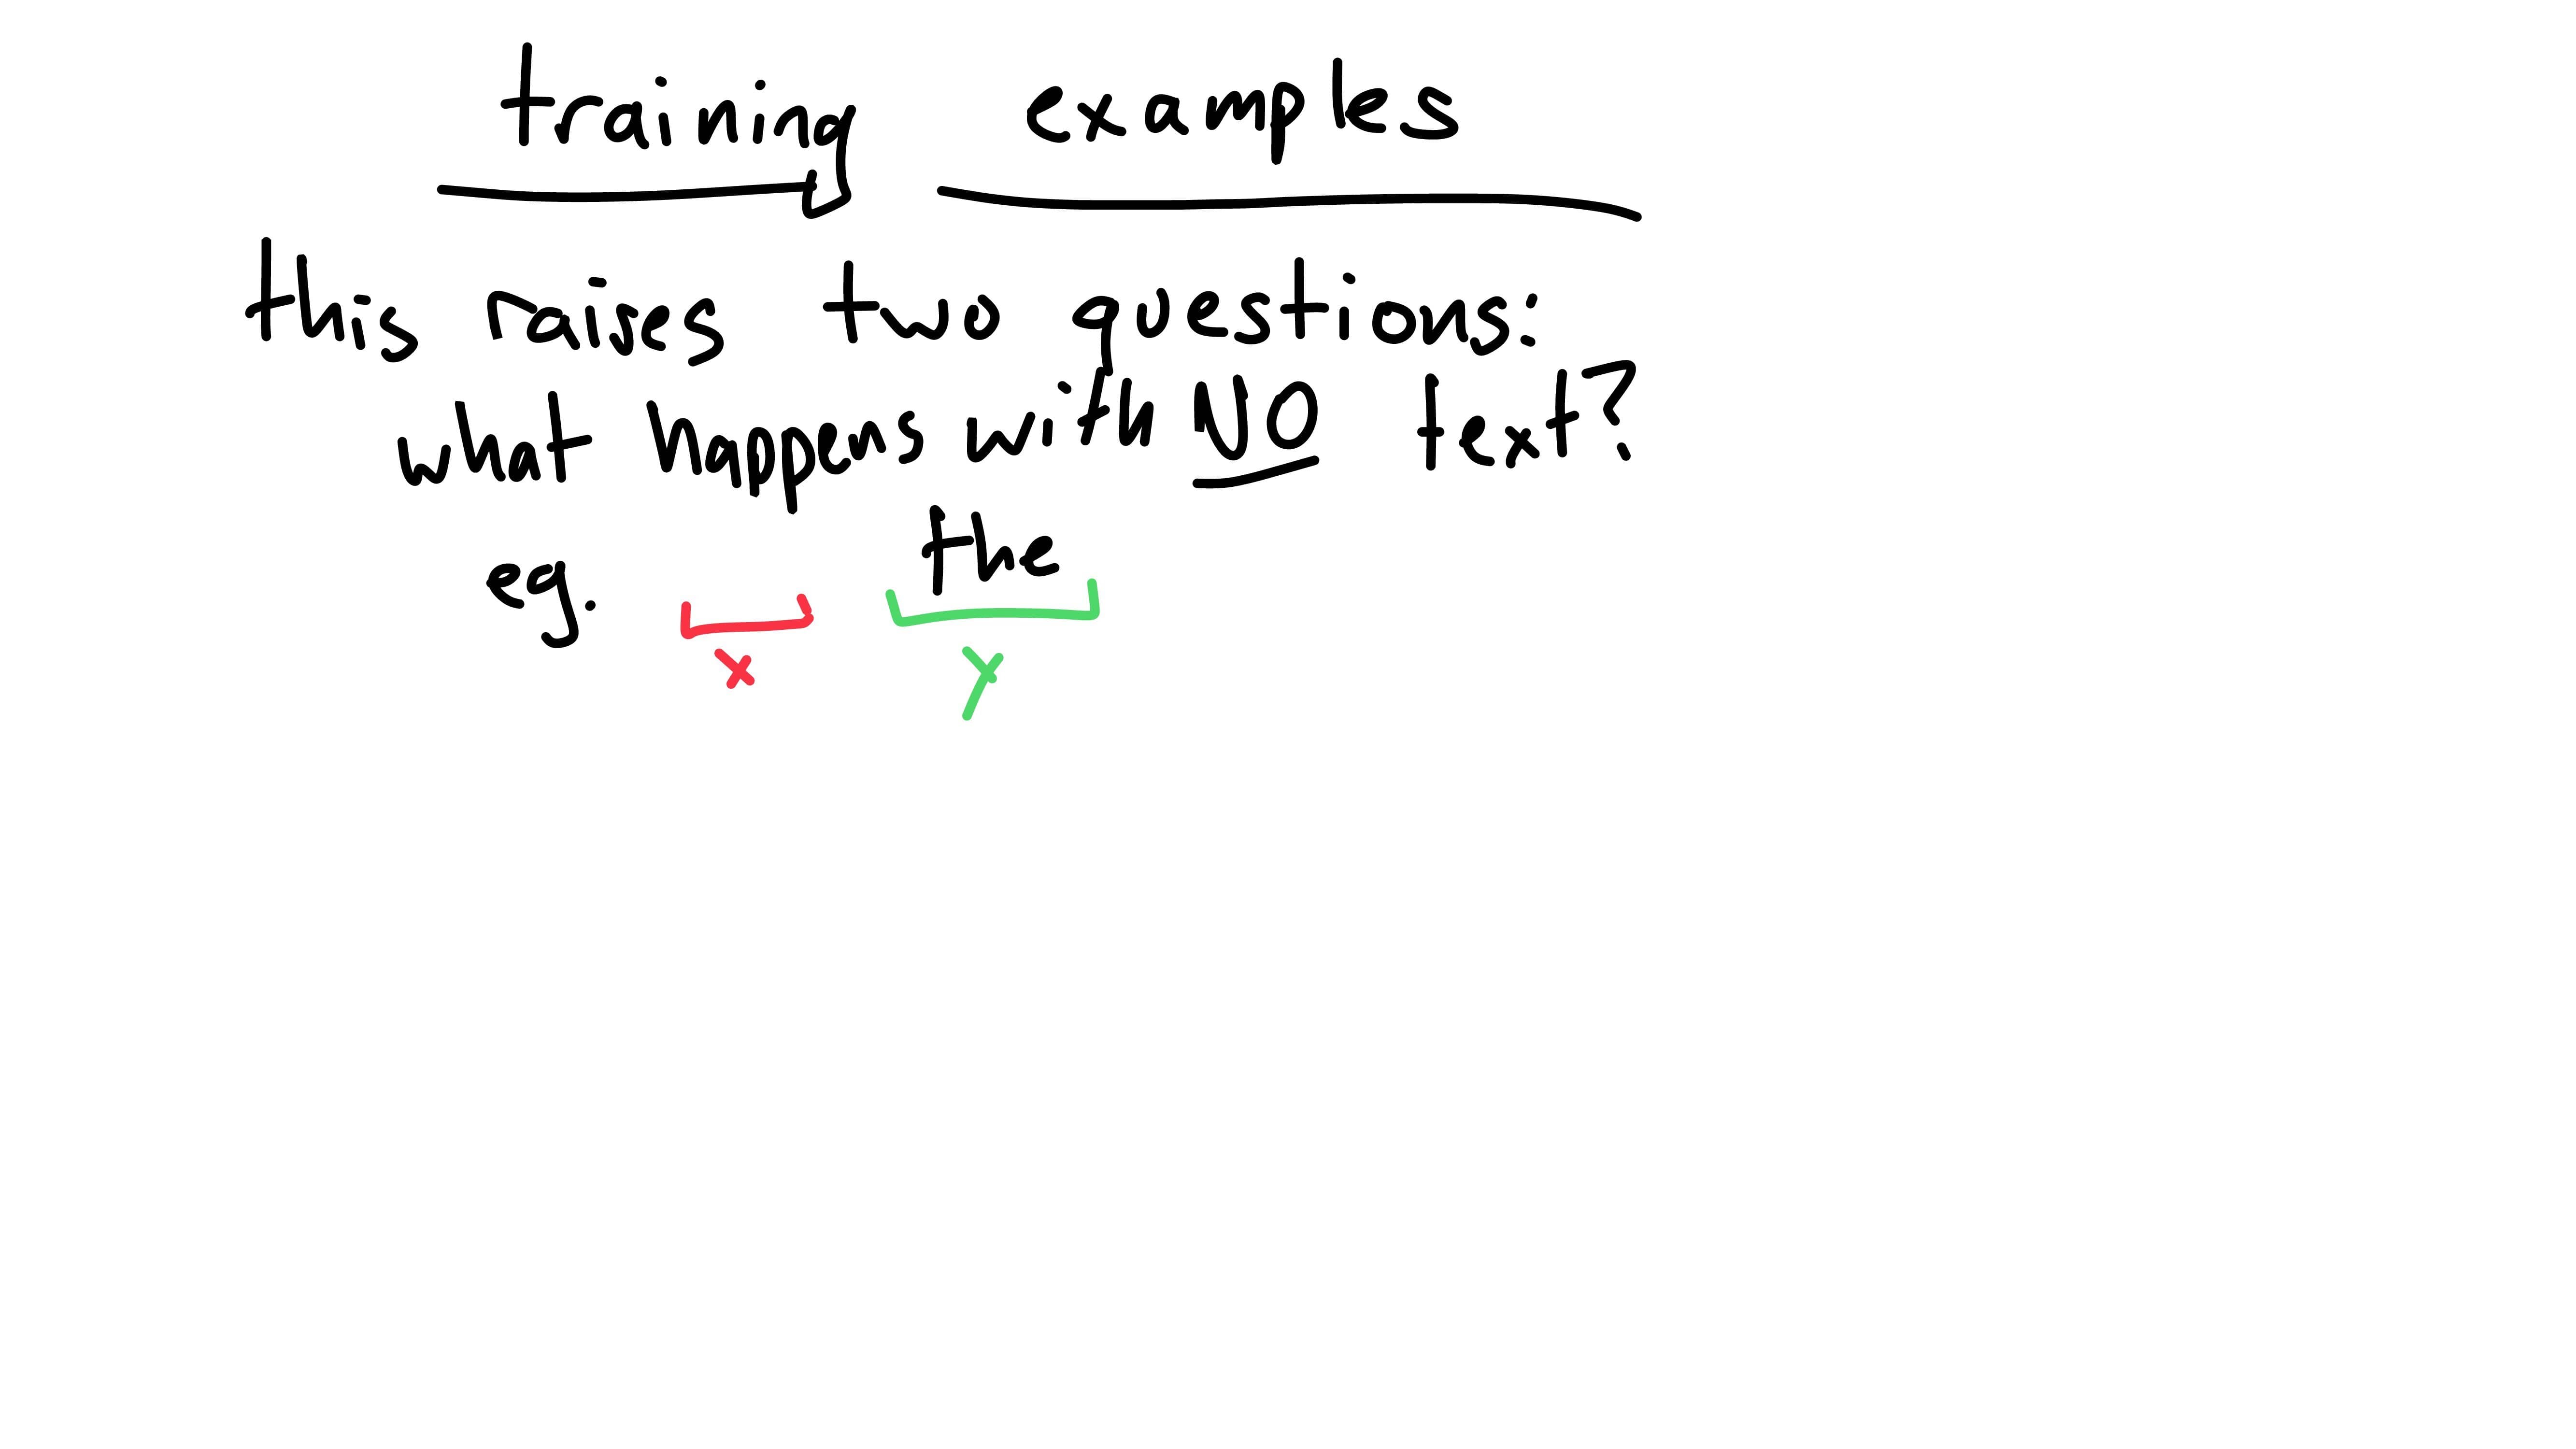 training examples
this raises two questions:
what happens with NO text?
eg. the
x y